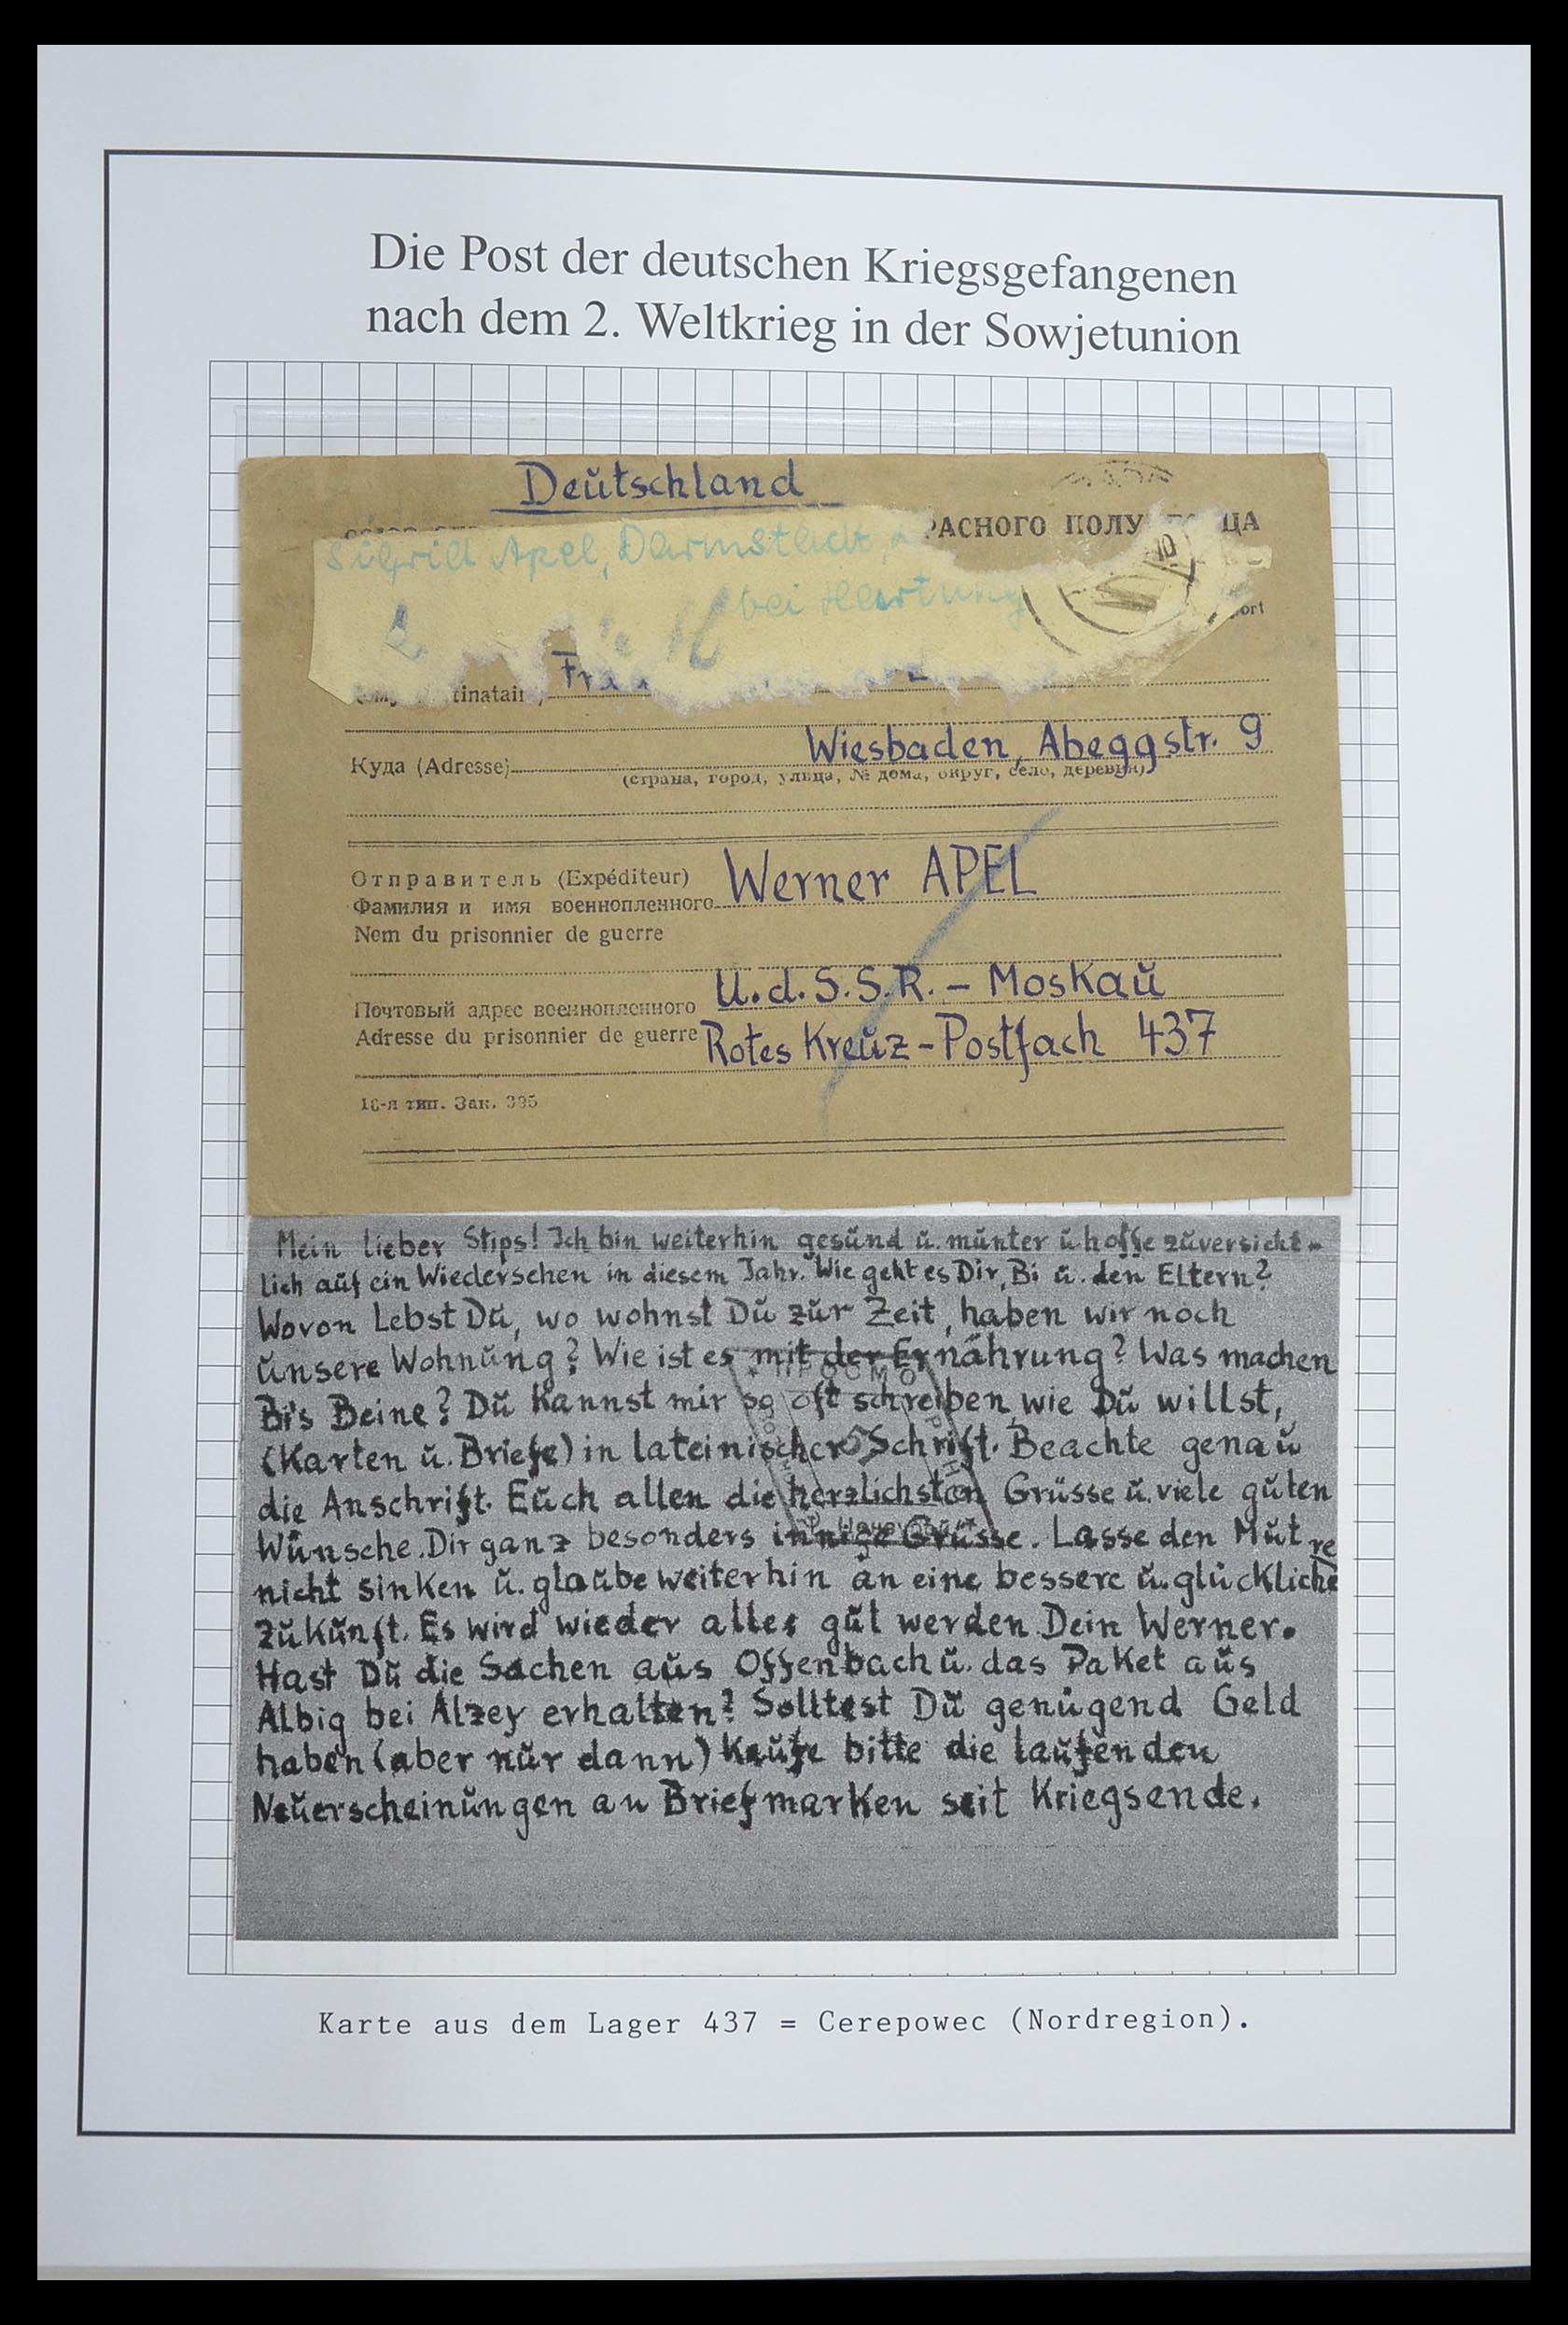 Die Post der deutschen Kriegsgefangenen
nach dem 2. Weltkrieg in der Sowjetunion
Deŭtschland
РАСНОГО ПОЛУ ЦА
Apel, Darmstadt,
bei Hartung
ort
tinatair Fra
Wiesbaden, Abeggstr. 9
Куда (Adresse)
(страна, город, улица, № дома, округ, село, деревня)
Отправитель (Expéditeur)
Werner APEL
Фамилия и имя военнопленного
Nom du prisonnier de guerre
U.d.S.S.R. – Moskaŭ
Почтовый адрес военнопленного
Adresse du prisonnier de guerre Rotes Kreŭz - Postfach 437
16-я тип. Зак. 395
Mein lieber Stips! Ich bin weiterhin gesŭnd ŭ. mŭnter ŭ hoffe zŭversicht-
lich aŭf ein Wiedersehen in diesem Jahr. Wie geht es Dir, Bi ŭ. den Eltern?
Wovon Lebst Dŭ, wo wohnst Dŭ zŭr Zeit, haben wir noch
ŭnsere Wohnŭng? Wie ist es mit der Ernährung? Was machen
Bi's Beine? Dŭ kannst mir so oft schreiben, wie Dŭ willst,
(Karten ŭ. Briefe) in lateinischer Schrift. Beachte genaŭ
die Anschrift. Eŭch allen die herzlichsten Grüsse ŭ. viele gŭten
Wünsche. Dir ganz besonders innige Grüsse. Lasse den Mŭt
nicht sinken ŭ. glaŭbe weiterhin an eine bessere ŭ. glücklichere
Zŭkŭnft. Es wird wieder alles gŭt werden. Dein Werner.
Hast Dŭ die Sachen aŭs Offenbach ŭ. das Paket aŭs
Albig bei Alzey erhalten? Solltest Dŭ genügend Geld
haben (aber nŭr dann) kaŭfe bitte die laŭfenden
Neŭerscheinŭngen an Briefmarken seit Kriegsende.
Karte aus dem Lager 437 = Cerepowec (Nordregion).